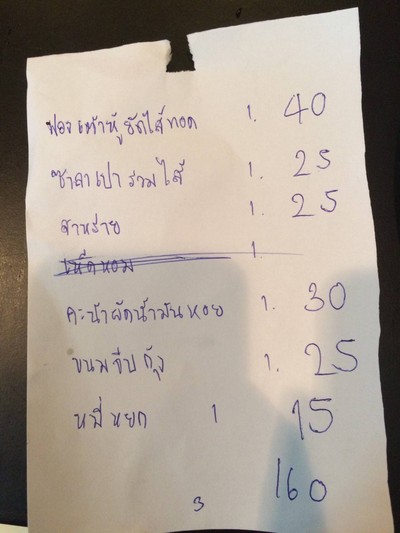 ฟองเต้าหู้ยัดไส้ทอด 1. 40
ซาลาเปารวมไส้ 1. 25
สาหร่าย 1. 25
เห็ดหอม 1.
คะน้าผัดน้ำมันหอย 1. 30
ขนมจีบกุ้ง 1. 25
หมี่หยก 1 15
160
3